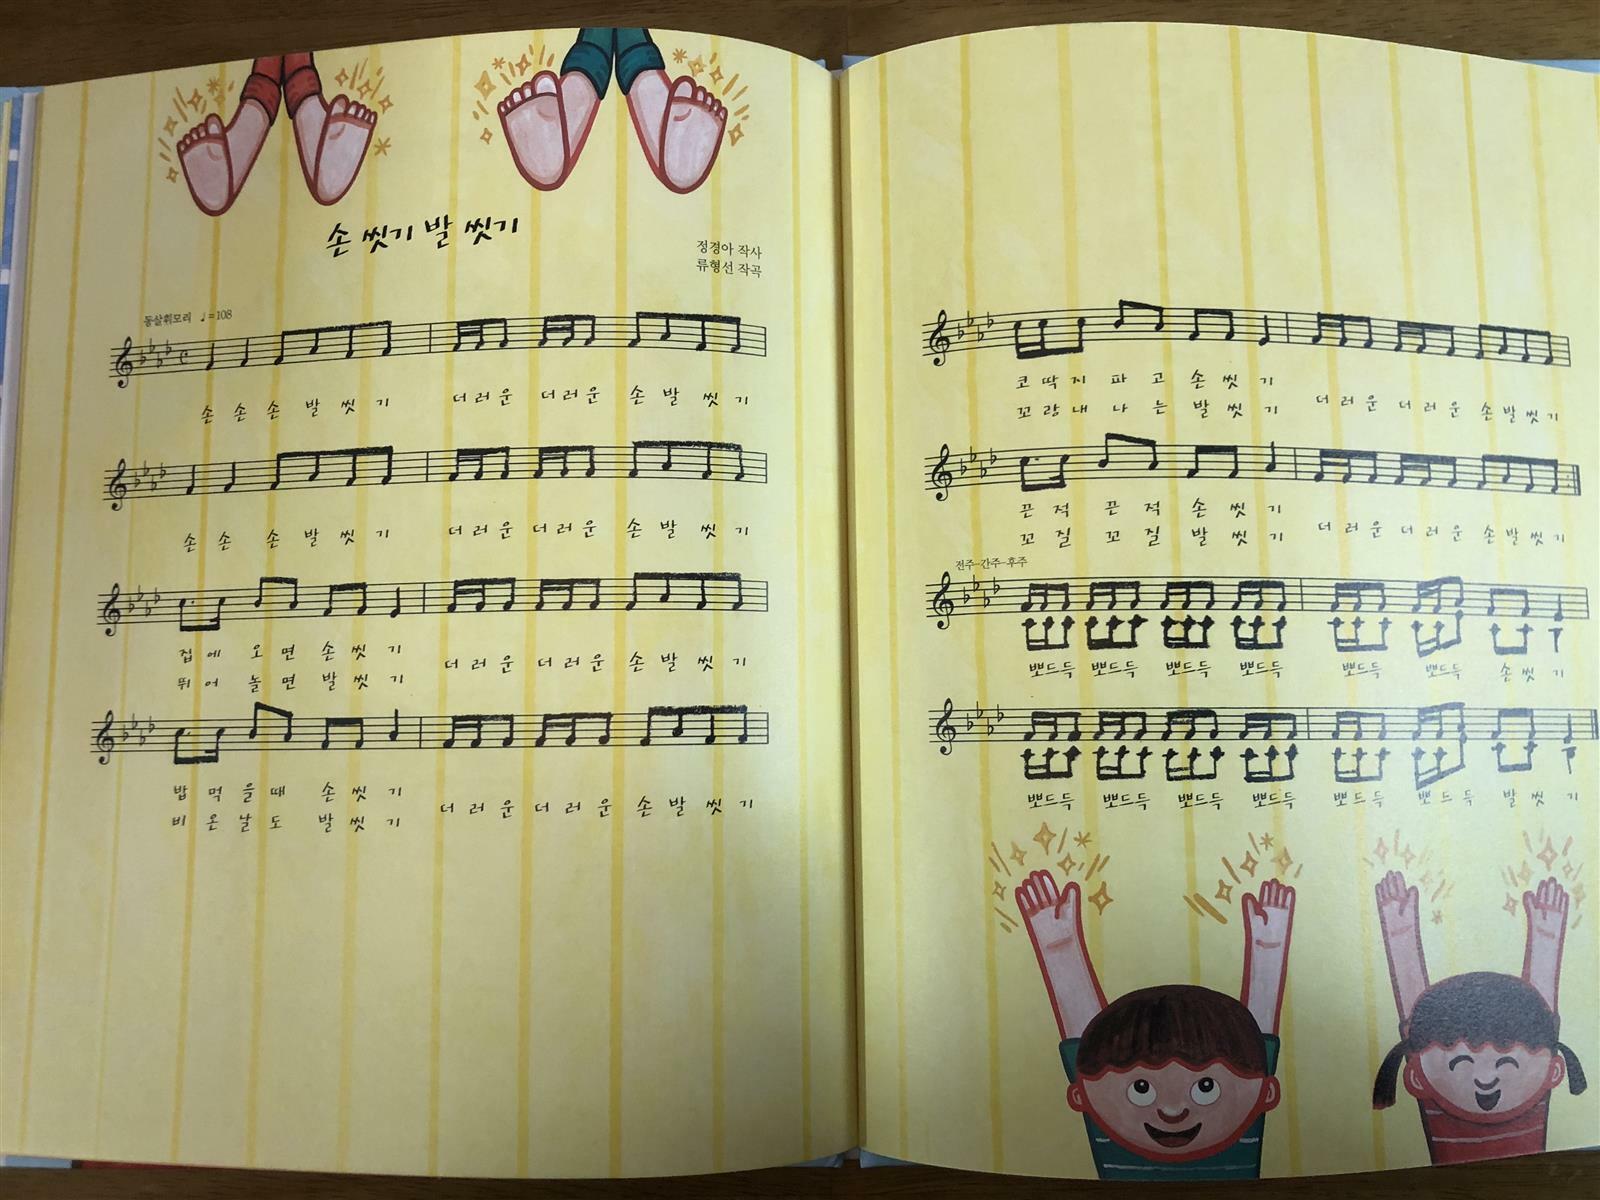 손 씻기 발 씻기
정경아 작사
류형선 작곡
동살휘모리 ♩=108
손 손 손 발 씻 기 더 러 운 더 러 운 손 발 씻 기
손 손 손 발 씻 기 더 러 운 더 러 운 손 발 씻 기
집 에 오 면 손 씻 기 더 러 운 더 러 운 손 발 씻 기
뛰 어 놀 면 발 씻 기
밥 먹 을 때 손 씻 기 더 러 운 더 러 운 손 발 씻 기
비 온 날 도 발 씻 기
코 딱 지 파 고 손 씻 기
꼬 랑 내 나 는 발 씻 기 더 러 운 더 러 운 손 발 씻 기
끈 적 끈 적 손 씻 기
꼬 질 꼬 질 발 씻 기 더 러 운 더 러 운 손 발 씻 기
전주-간주-후주
뽀드득 뽀드득 뽀드득 뽀드득 뽀드득 뽀드득 손 씻 기
뽀드득 뽀드득 뽀드득 뽀드득 뽀드득 뽀 드 득 발 씻 기